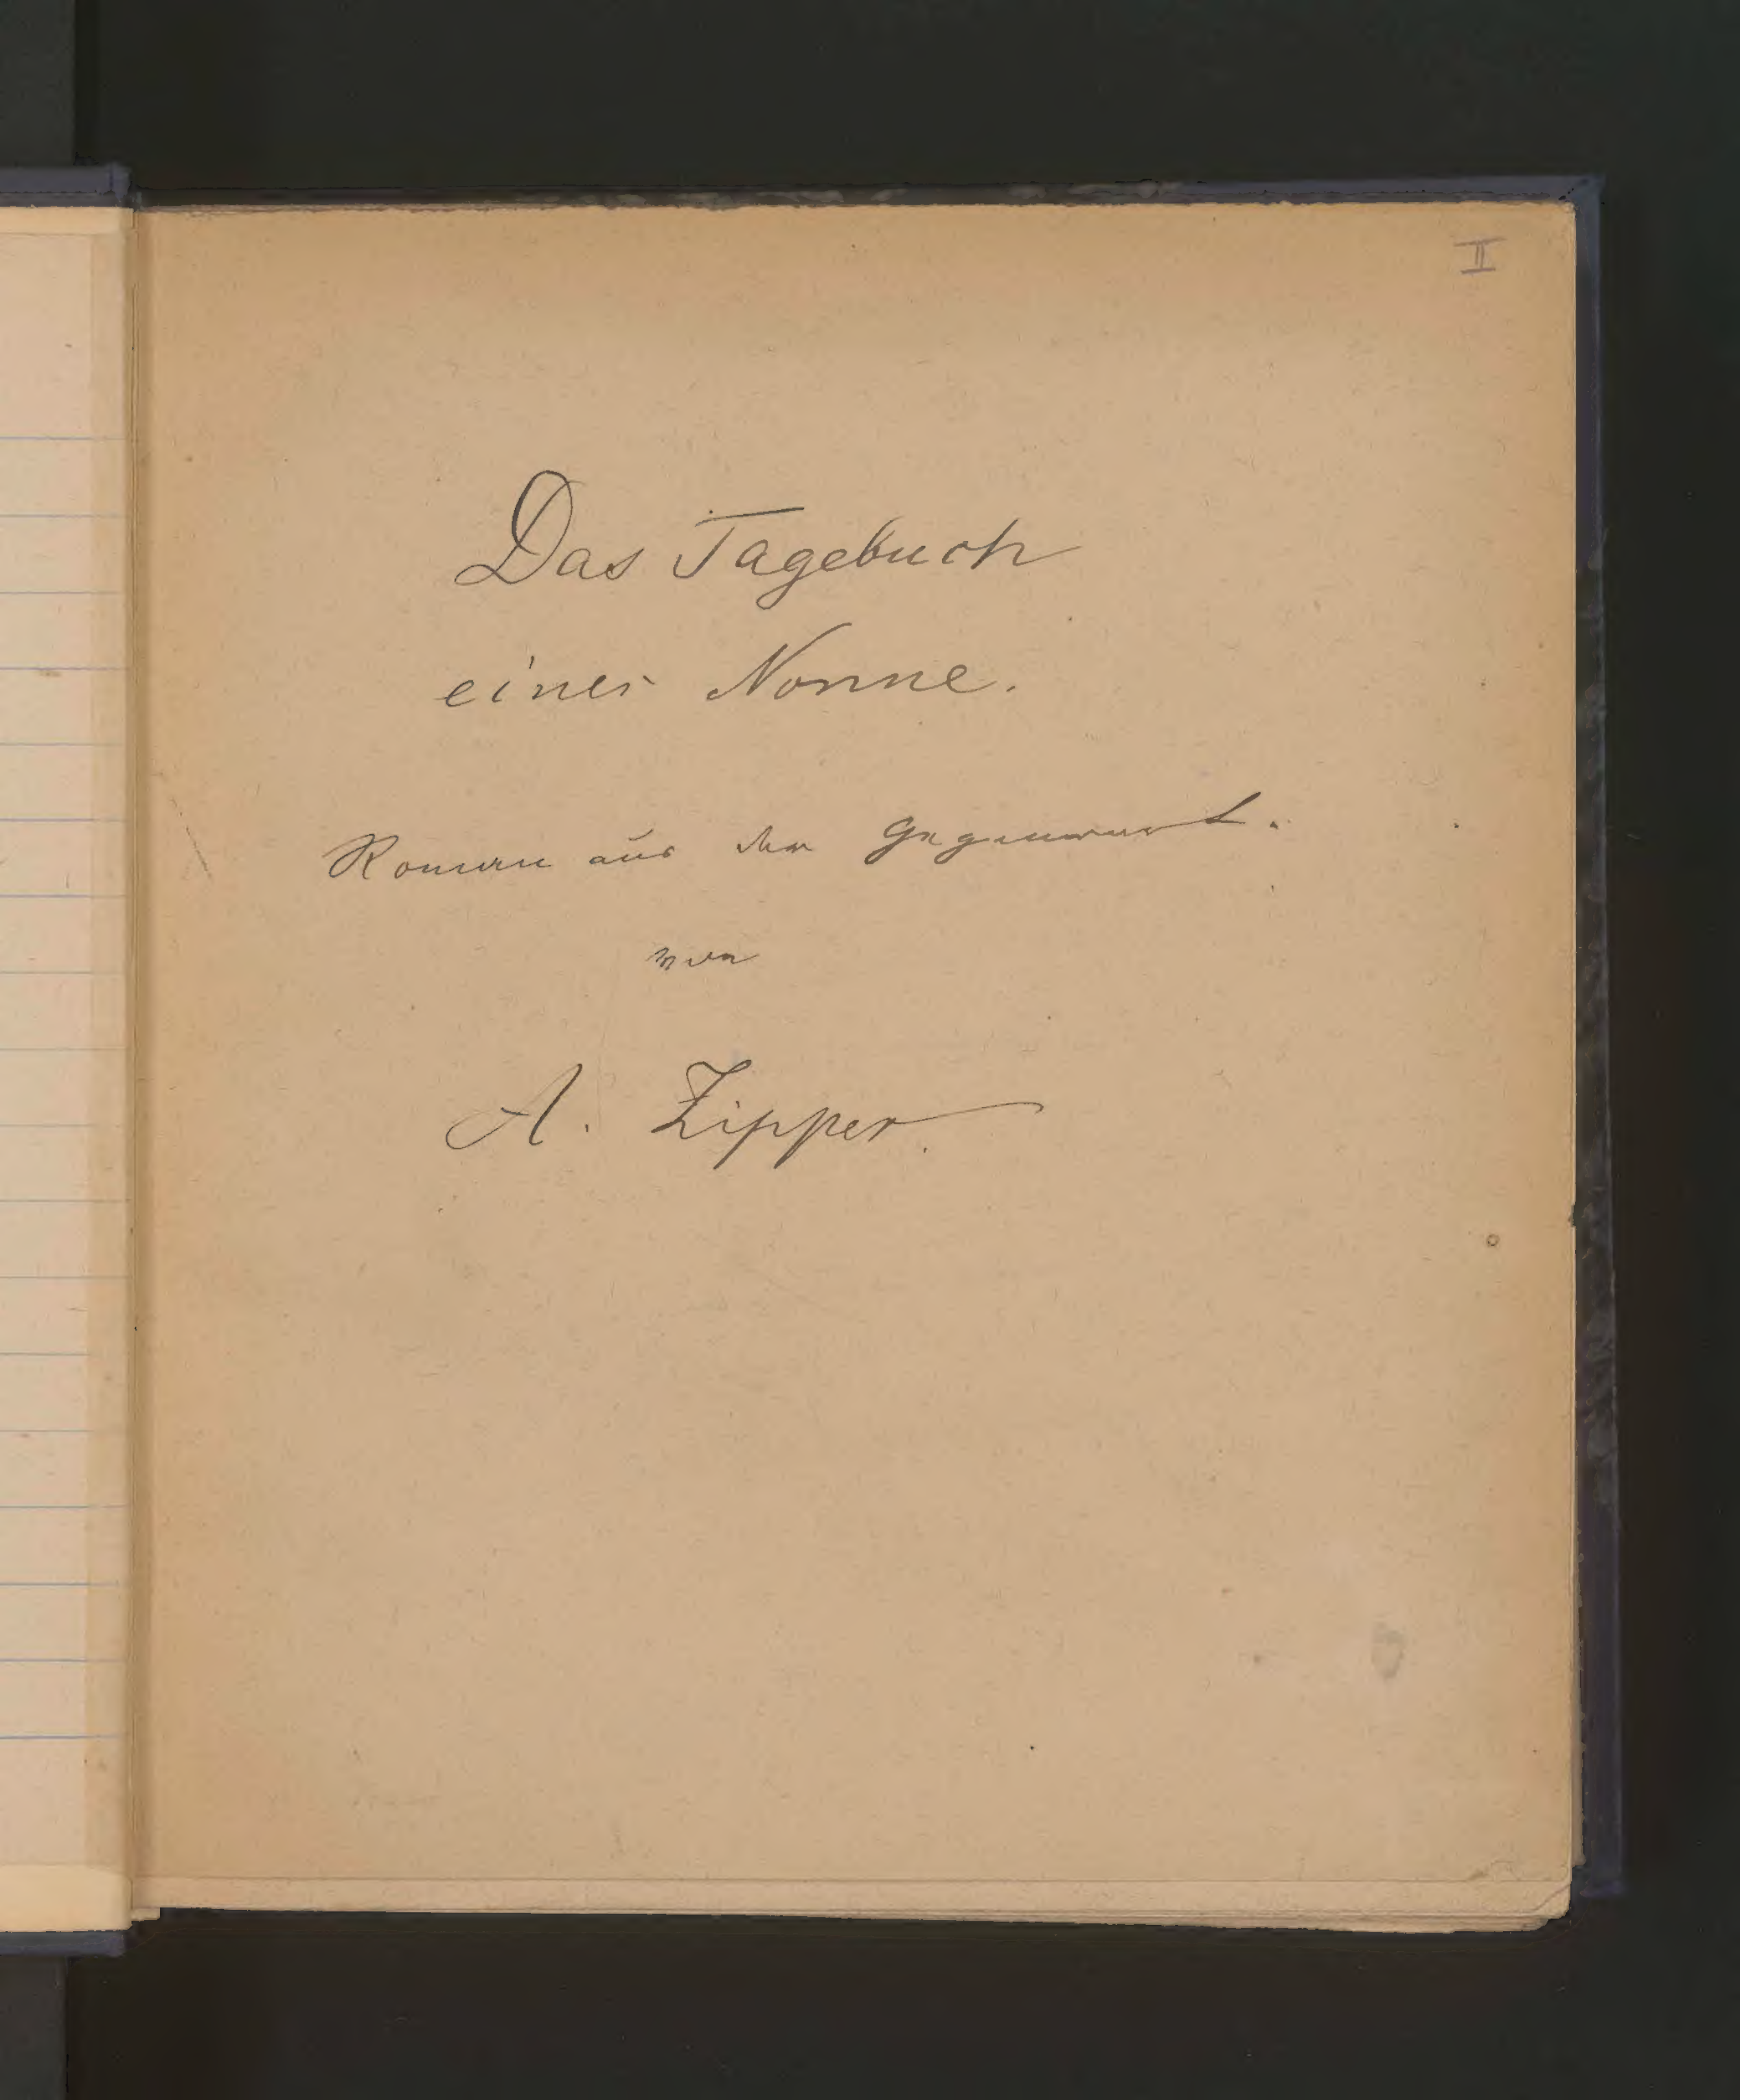 II
Das Tagebuch
einer Nonne.
Roman aus der Gegenwart.
von
A. Zipper.